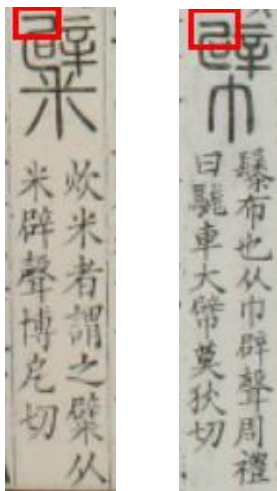 糪
炊米者謂之糪从
米辟聲博戹切
幦
䰍布也从巾辟聲周禮
曰駹車大幦莫狄切